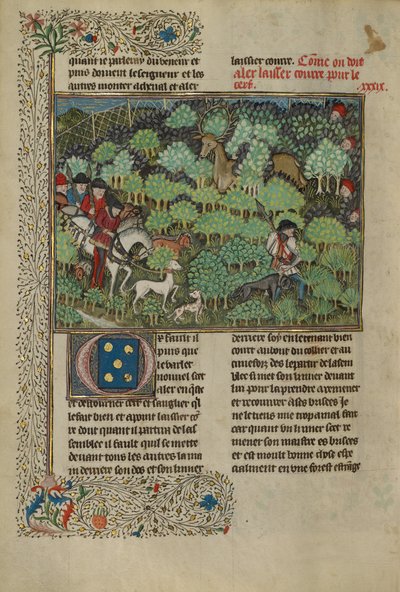 quant je parleray du veneur et
puis doiuent le seigneur et les
autres monter a cheual et aler
laissier courre. Come on doit
aler laissier courre pour le
cerf. .xxxix.
Or fault il
puis que
le varlet
nouuel soit
aler en queste
et destourner cerf et sanglier qͥl
le sait bien et a point laissier coꝛ̄
re dont quant il partira de las
semblee il fault quil se mette
deuant tous les autres la ma
in derriere son dos et son limier
derriere soy en le tenant bien
court
du collier et au
des le partir de lasem
blee si met son limier deuant
lui pour la prendre a remener
et recouurer a ses brisees Je
ne le tiens mie trop a mal fait
car quant un limier scet re
mener son maistre es brisees
et est moult bonne chose espe
cialment en une forest estrãge